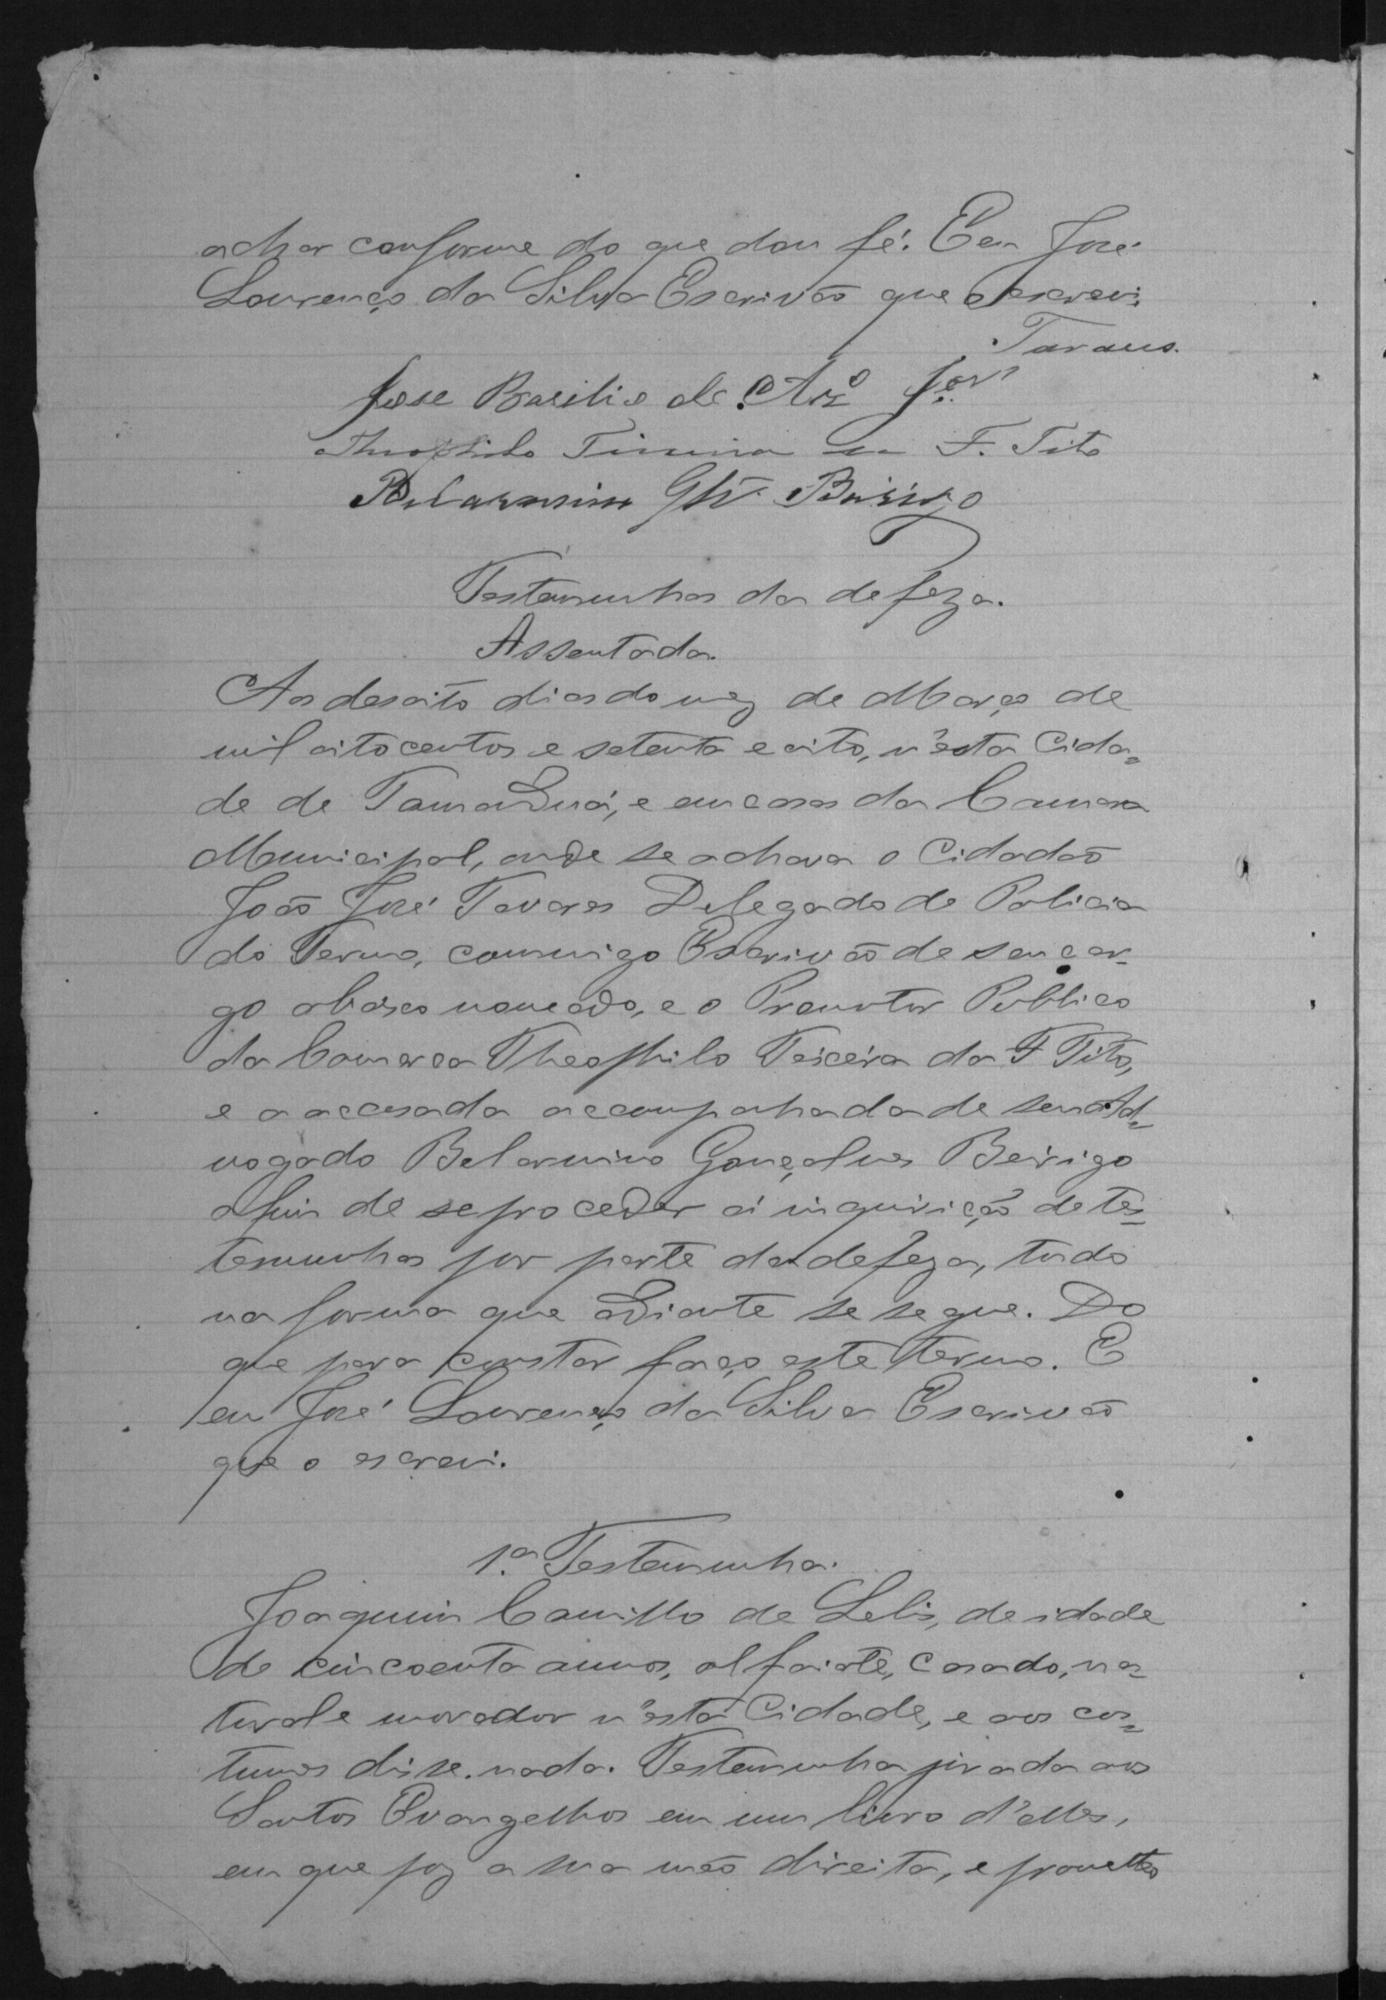 achar conforme do que dou fé. E eu José
Lourenço da Silva Escrivão que o escrevi.
Tavares.
Jose Basilio de Arº Jor
Theophilo Teixeira da F. Tito
Belarmino Glz Beirigo
Testemunhas da defeza.
Assentada.
Aos desoito dias do mez de Março de
mil oitocentos e setenta e oito, n'esta Cida=
de de Tamanduá, e em casa da Camara
Municipal, onde se achava o Cidadão
João José Tavares Delegado de Policia
do Termo, commigo Escrivão de seu car=
go abaixo nomeado, e o Promotor Publico
da Comarca Theophilo Teixeira da F Tito,
e a accusada acompanhada de seu Ad=
vogado Belarmino Gonçalves Beirigo
afim de se proceder á inquirição de tes=
temunhas por parte da defeza, tudo
na forma que adiante se segue. Do
que para constar faço este termo. E
eu José Lourenço da Silva Escrivão
que o escrevi.
1.ª Testemunha.
Joaquim Camillo de Lelis, de idade
de cincoenta annos, alfaiate, casado, na=
tural e morador n'esta Cidade, e aos cos=
tumes disse nada. Testemunha jurada aos
Santos Evangelhos em um livro d'elles,
em que poz a sua mão direita, e prometteo